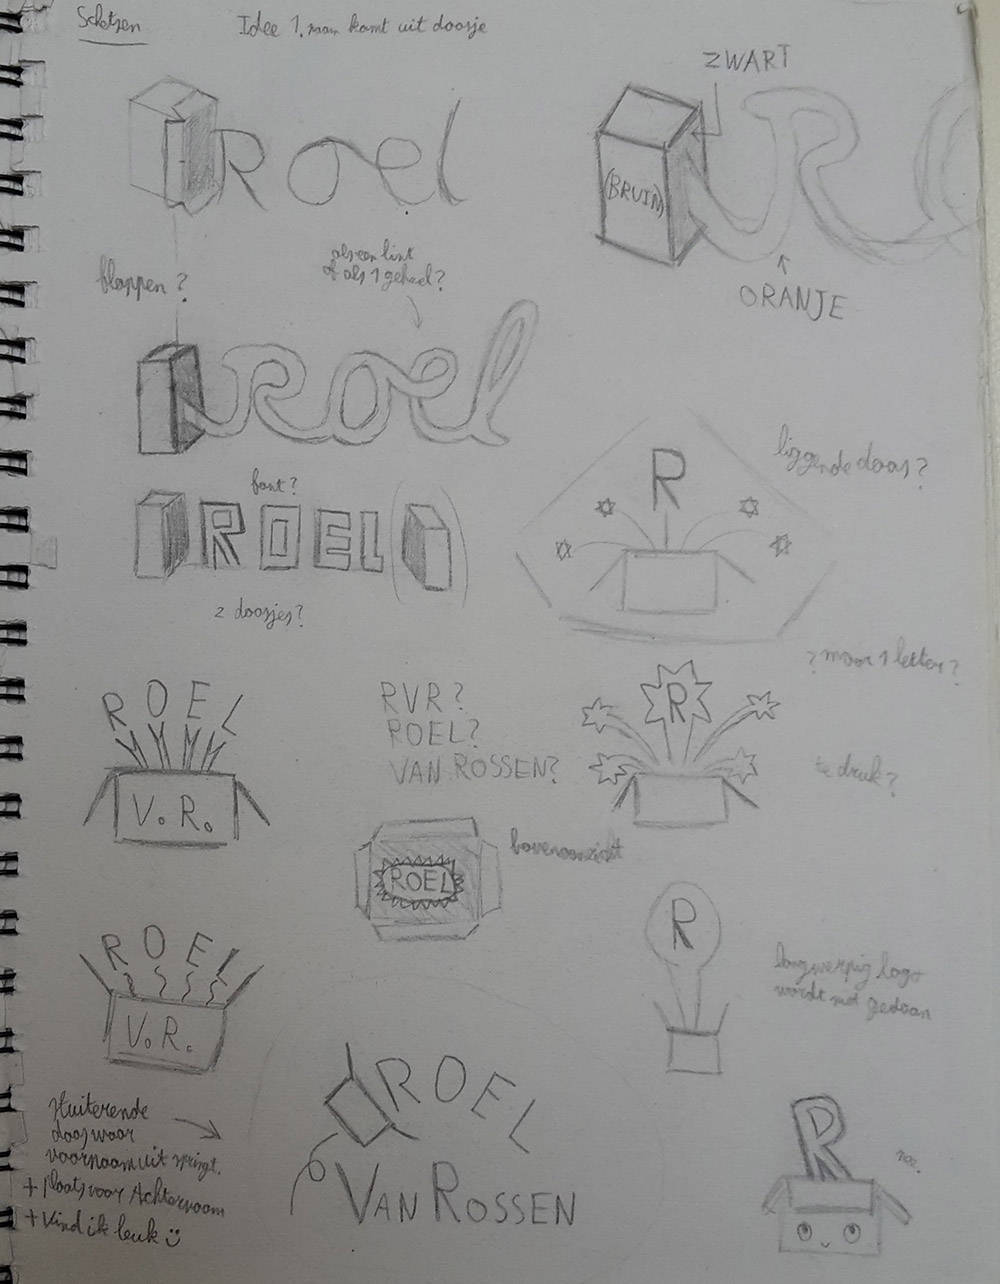 Schetsen
Idee 1. naam komt uit doosje
ZWART
Roel
R O
(BRUIN)
flappen?
als een lint
of als 1 geheel?
ORANJE
Roel
font?
liggende doos?
R
ROEL
2 doosjes?
? maar 1 letter?
ROEL
RVR?
ROEL?
VAN ROSSEN?
R
te druk?
V.R.
bovenaanzicht
ROEL
R
langwerpig logo
wordt niet gedaan
ROEL
V.R.
ROEL
VAN ROSSEN
Stuiterende
doos waar
voornaam uit springt.
+ plaats voor Achternaam
+ Vind ik leuk
R